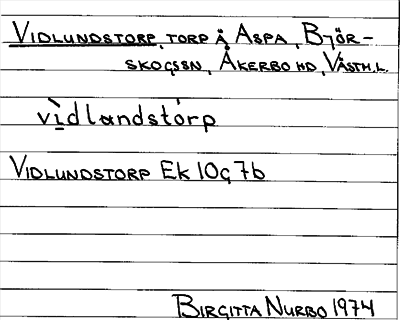 VIDLUNDSTORP, TORP Å ASPA, BJÖR-
SKOGSSN, ÅKERBO HD, VÄSTM.L.
vìdlandstórp
VIDLUNDSTORP Ek 10g 7b
BIRGITTA NURBO 1974